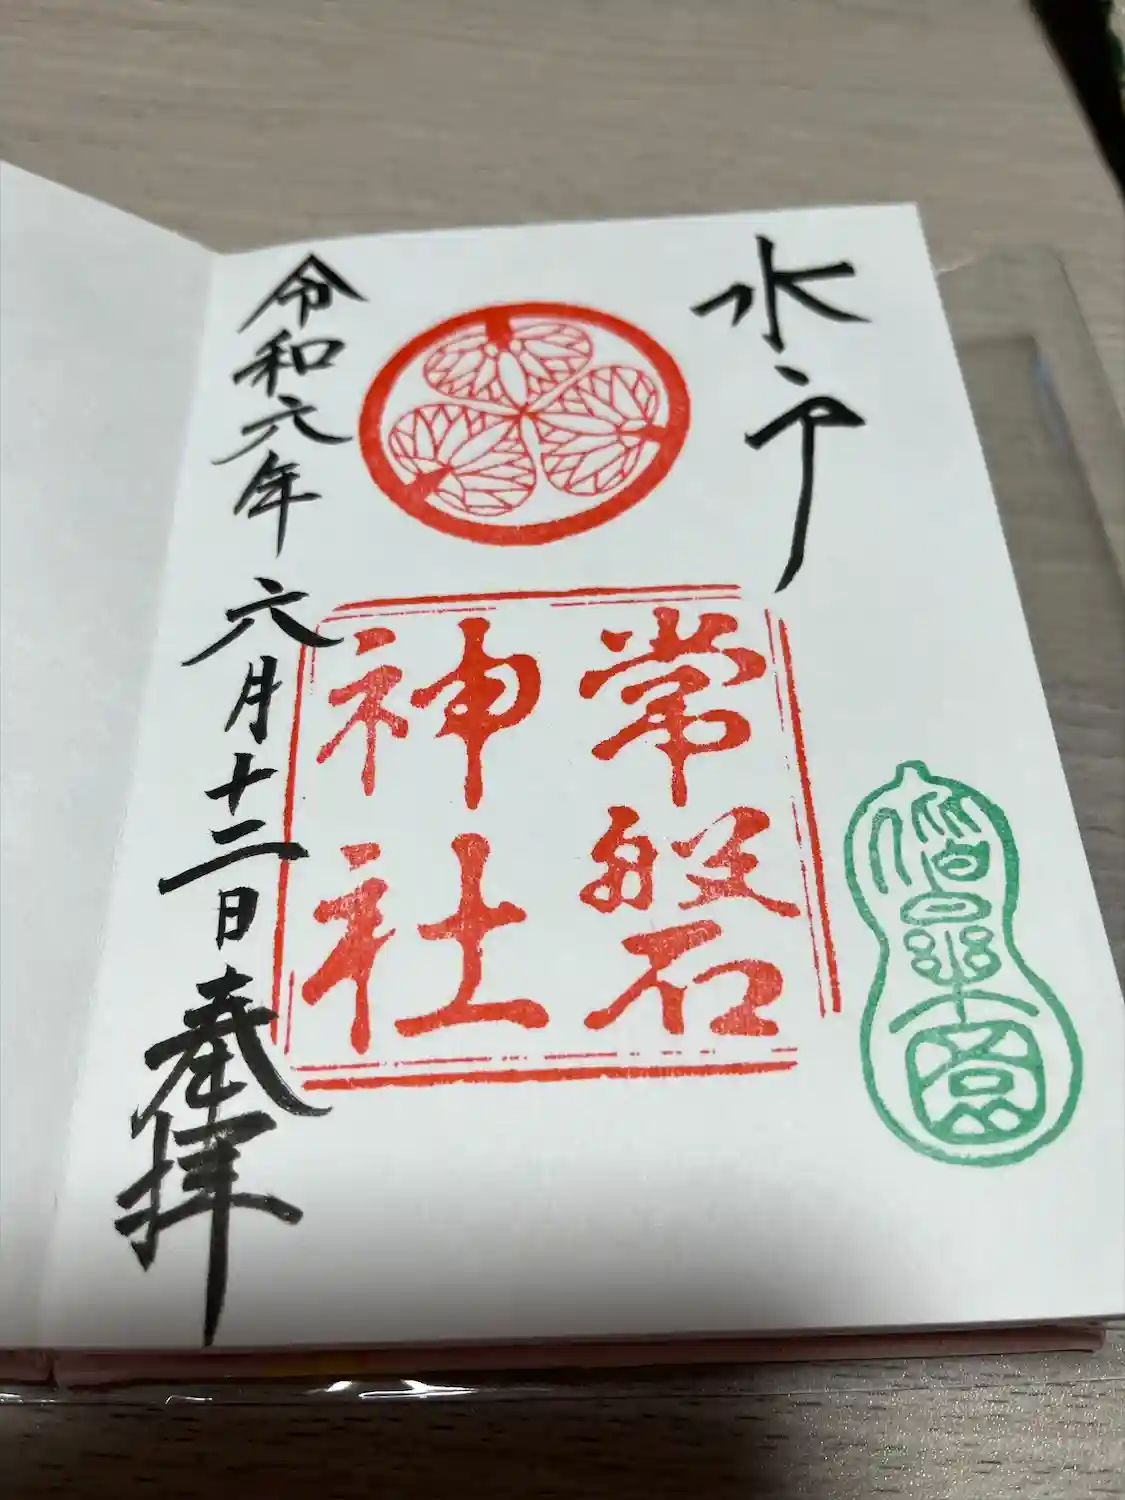 水戸
常磐
神社
偕楽園
令和六年六月十二日
奉拝